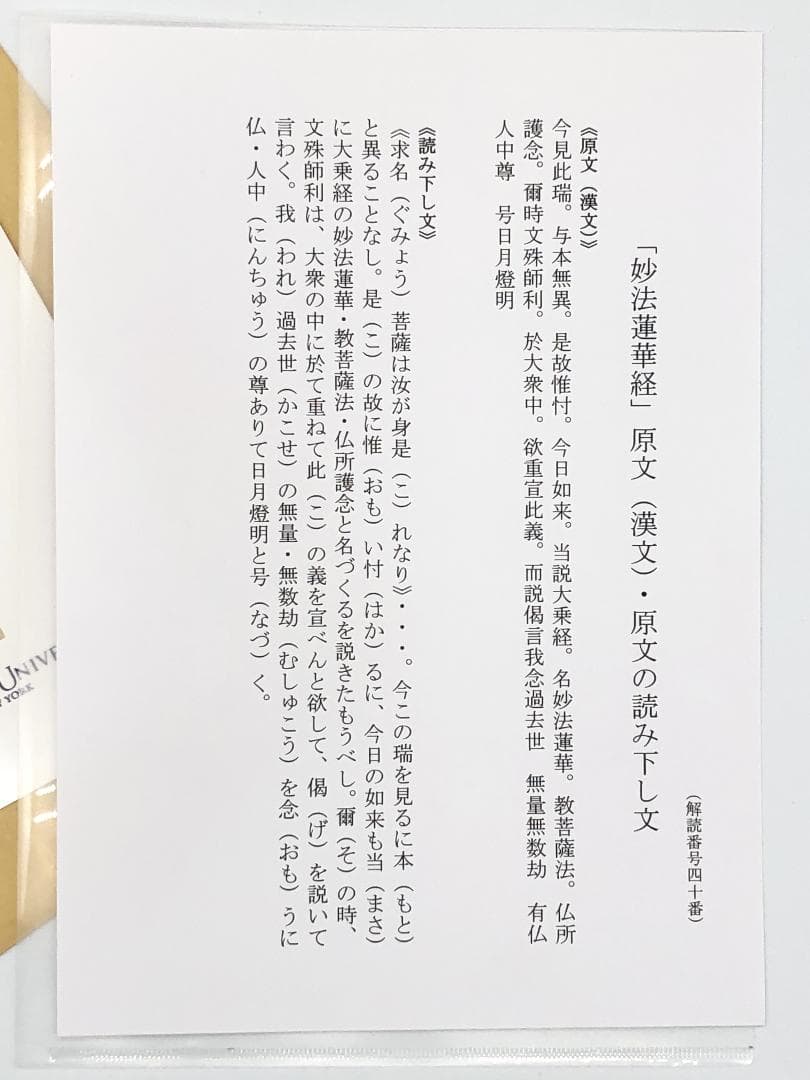 （解読番号四十番）
「妙法蓮華経」原文（漢文）・原文の読み下し文
《原文（漢文）》
今見此瑞。与本無異。是故惟忖。今日如来。当説大乗経。名妙法蓮華。教菩薩法。仏所
護念。爾時文殊師利。於大衆中。欲重宣此義。而説偈言我念過去世　無量無数劫　有仏
人中尊　号日月燈明
《読み下し文》
《求名（ぐみょう）菩薩は汝が身是（こ）れなり》・・・。今この瑞を見るに本（もと）
と異ることなし。是（こ）の故に惟（おも）い忖（はか）るに、今日の如来も当（まさ）
に大乗経の妙法蓮華・教菩薩法・仏所護念と名づくるを説きたもうべし。爾（そ）の時、
文殊師利は、大衆の中に於て重ねて此（こ）の義を宣べんと欲して、偈（げ）を説いて
言わく。我（われ）過去世（かこせ）の無量・無数劫（むしゅこう）を念（おも）うに
仏・人中（にんちゅう）の尊ありて日月燈明と号（なづ）く。
UNIVE
YORK